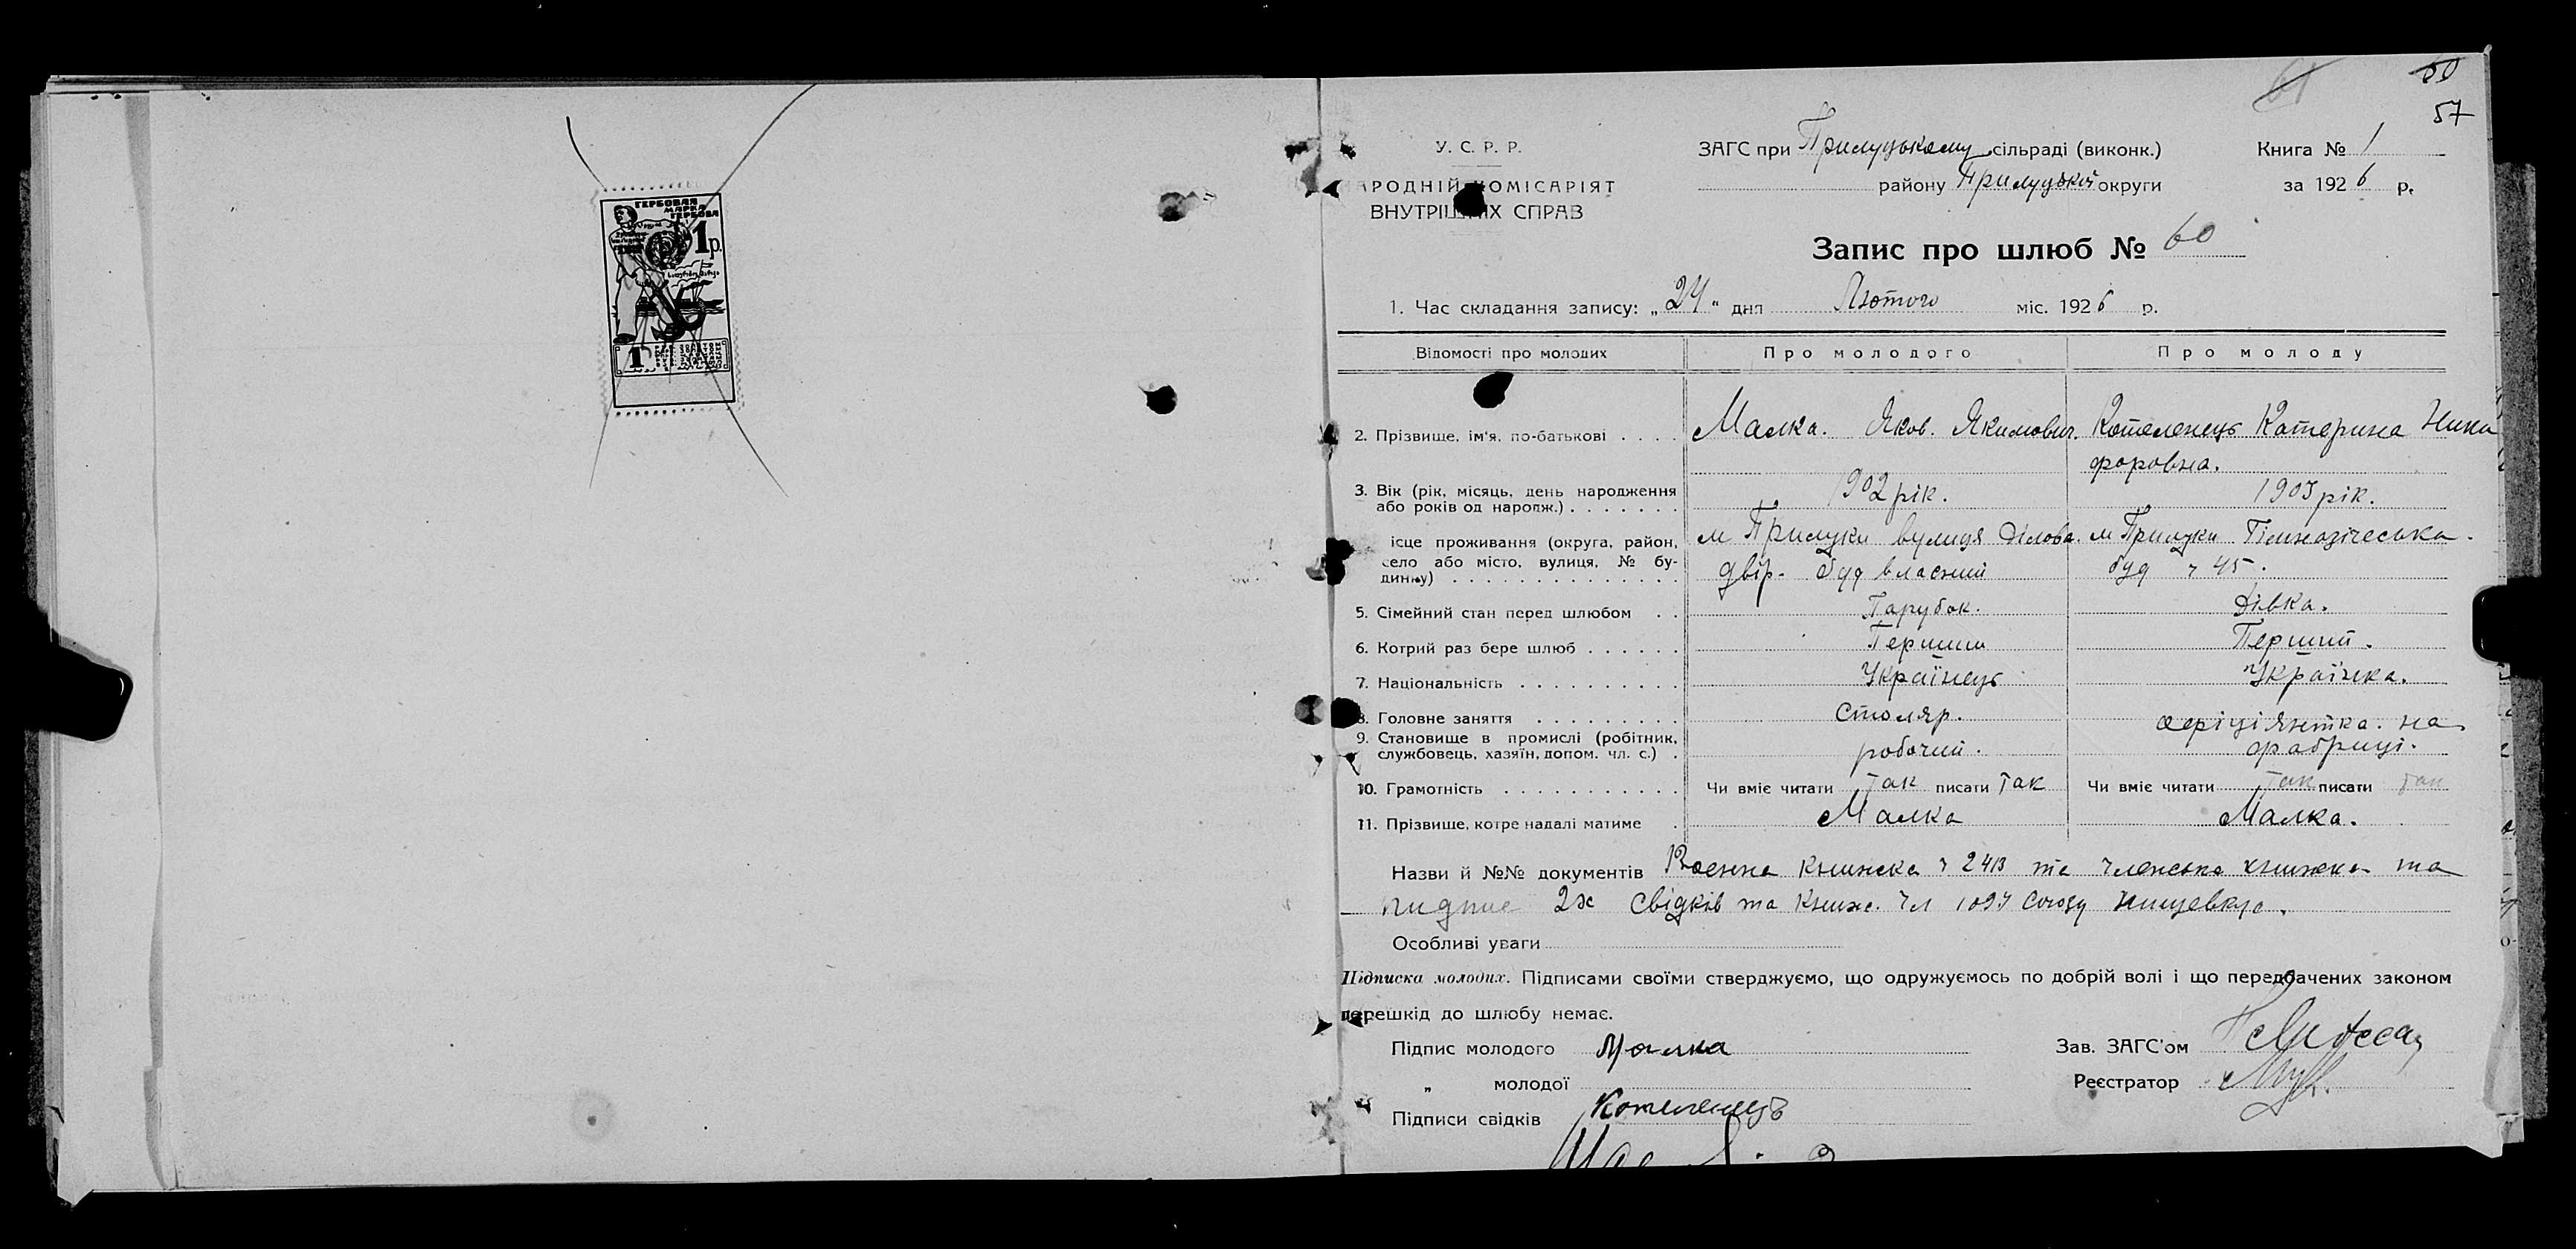 50
57
ГЕРБОВАЯ
МАРКА
ГЕРБОВА
1 р.
1
У. С. Р. Р.
АРОДНІЙ КОМІСАРІЯТ
ВНУТРІШНІХ СПРАВ
ЗАГС при Прилуцькому сільраді (виконк.)
району Прилуцької округи
Книга № 1
за 1926 р.
Запис про шлюб № 60
1. Час складання запису: „24“ дня Лютого міс. 1926 р.
Відомості про молодих Про молодого Про молоду
2. Прізвище, ім'я, по-батькові Малка. Яков. Якимович. Котеленець Катерина Ники
форовна.
3. Вік (рік, місяць, день народження 1902 рік. 1903 рік.
або років од народж.)
ісце проживання (округа, район, м Прилуки вулиця Ділова. м Прилуки Гімназічеська.
село або місто, вулиця, № бу- двір. буд власний буд ч 45.
динку)
5. Сімейний стан перед шлюбом Парубок. Дівка.
6. Котрий раз бере шлюб Перший Перший.
7. Національність Українець Українка.
8. Головне заняття Столяр. на
9. Становище в промислі (робітник, робочий. фабриці.
службовець, хазяїн, допом. чл. с.)
10. Грамотність Чи вміє читати так писати так Чи вміє читати так писати так
11. Прізвище, котре надалі матиме Малка Малка.
Назви й №№ документів Военна книжка ч 2413 та членська книжка та
2х свідків та книж. Чл союзу
Особливі уваги
Підписка молодих. Підписами своїми стверджуємо, що одружуємось по добрій волі і що передбачених законом
перешкід до шлюбу немає.
Підпис молодого Малка
„ молодої
Підписи свідків Котеленець
Зав. ЗАГС'ом
Реєстратор